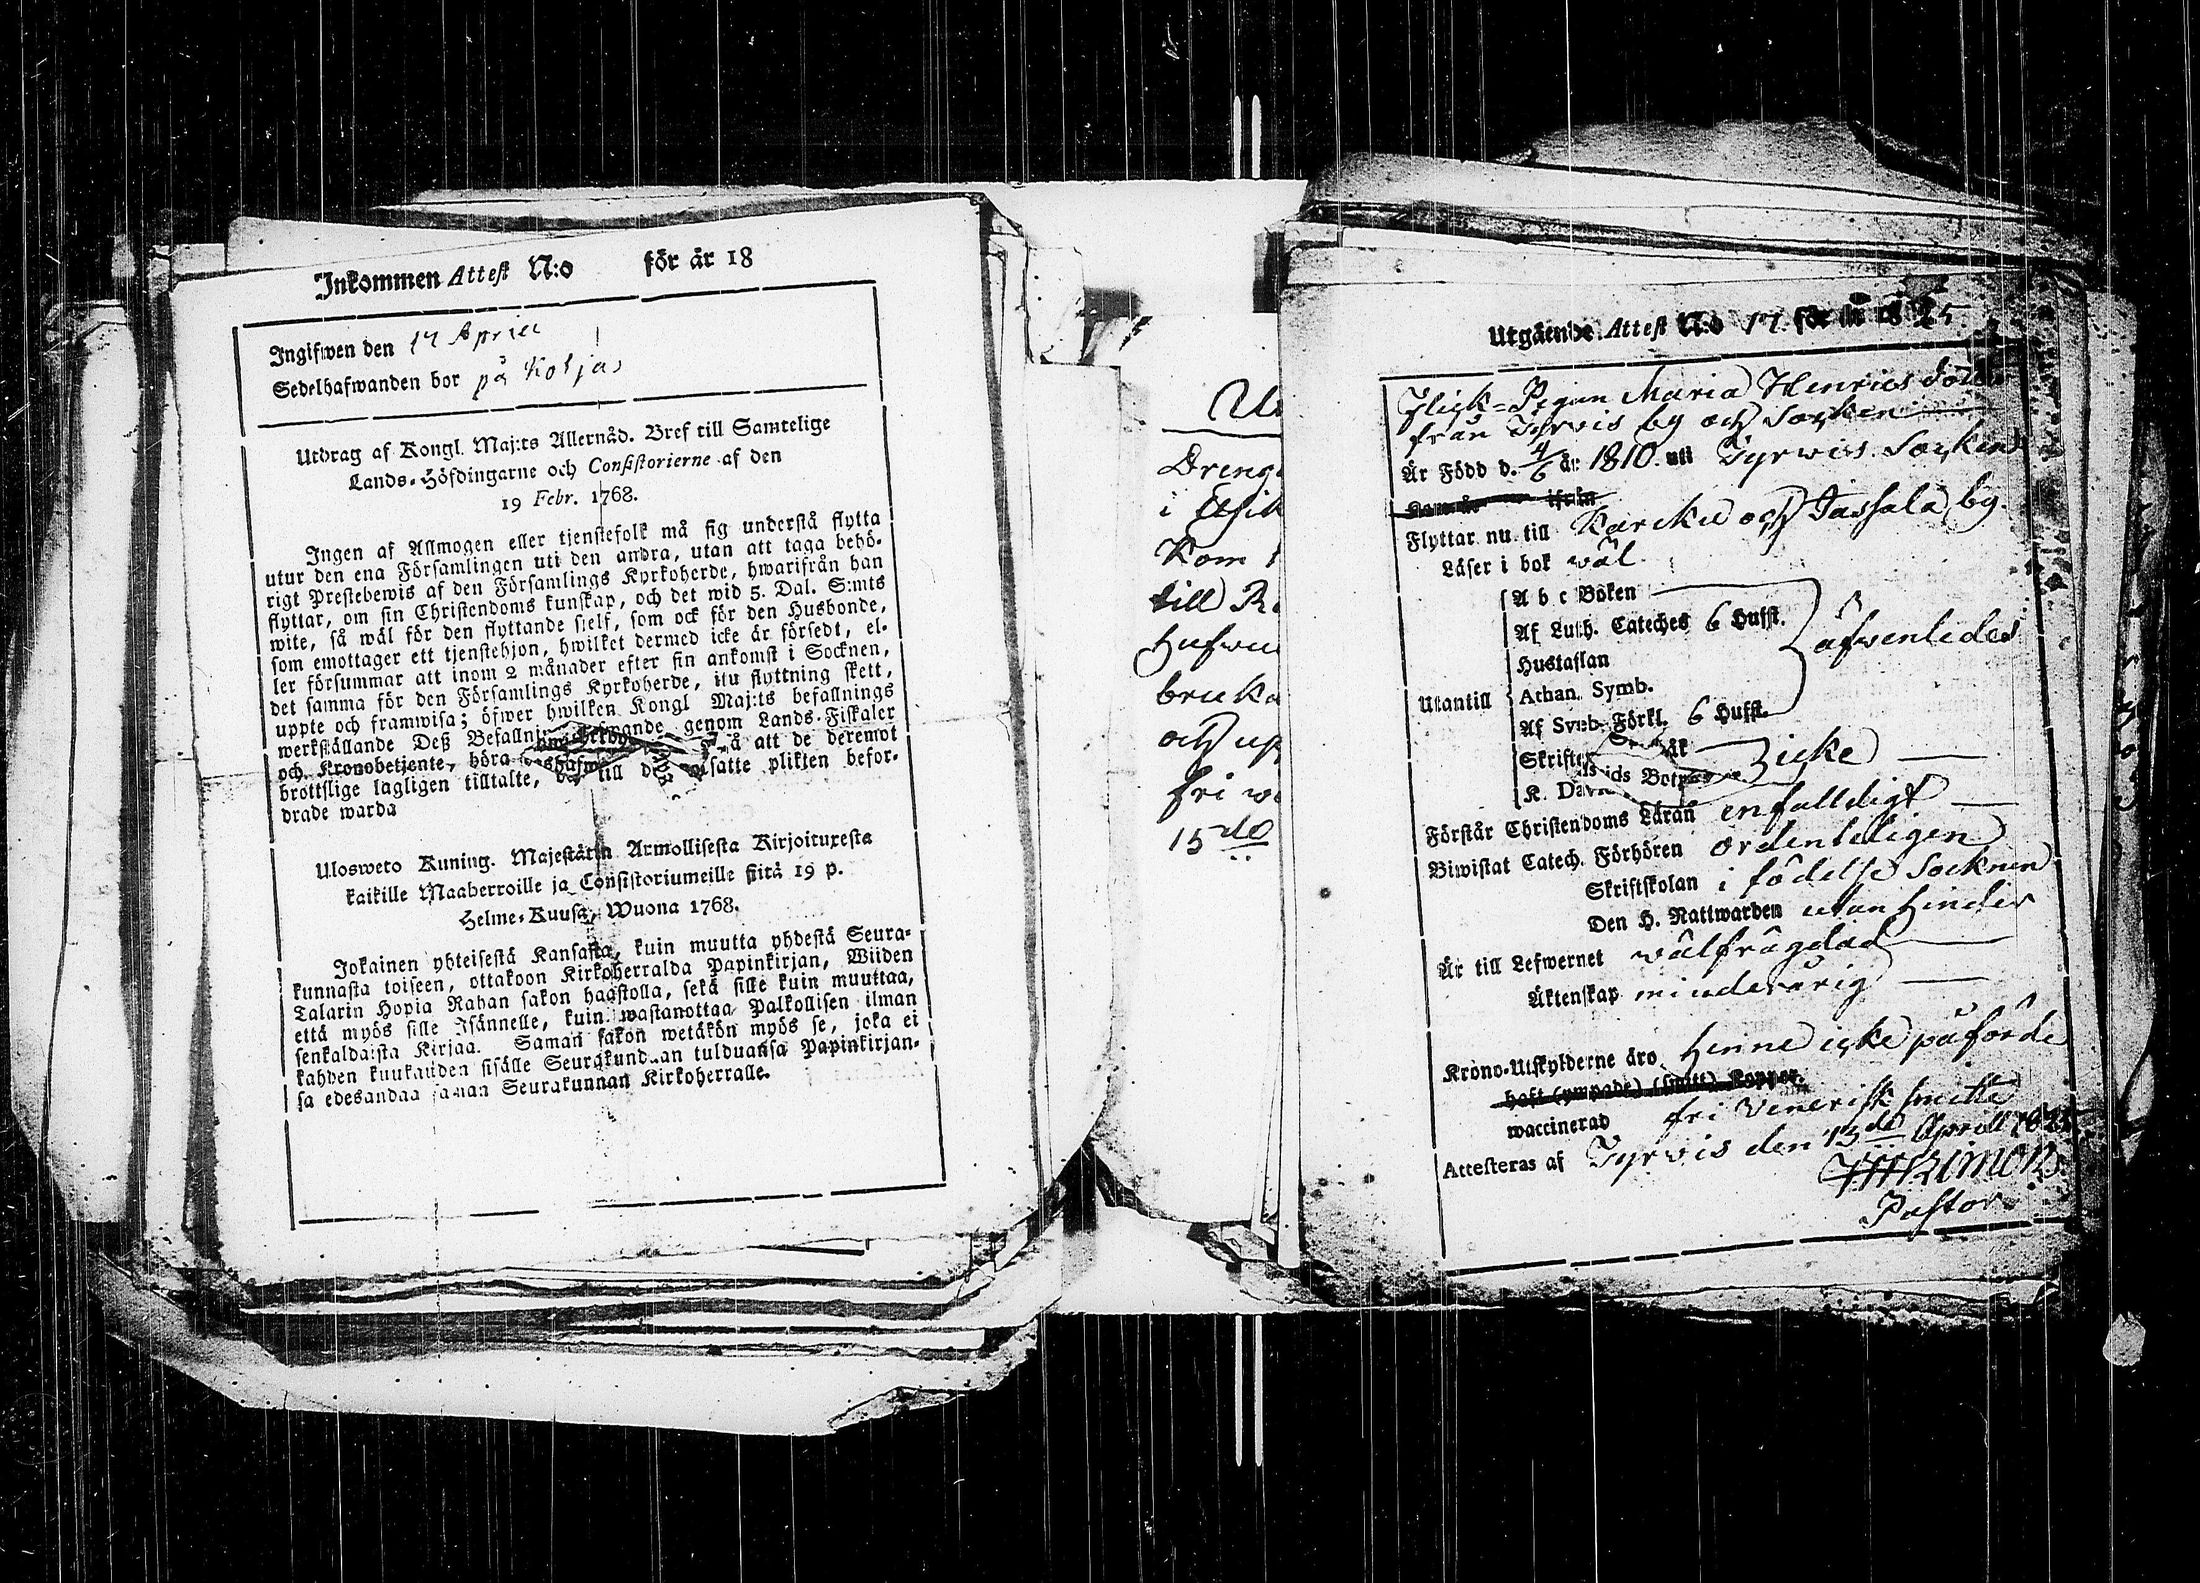 Inkommen Attest N:o för år 18
Ingifwen den 17 April
Sedelhafwanden bor på Kolja
Utdrag af Kongl. Maj:ts Allernåd. Bref till Samtelige
Lands-Höfdingarne och Consistorierne af den
19 Febr. 1768.
Ingen af Allmogen eller tjenstefolk må sig understå flytta
utur den ena Församlingen uti den andra, utan att taga behö-
rigt Prestebewis af den Församlings Kyrkoherde, hwarifrån han
flyttar, om sin Christendoms kunskap, och det wid 5. Dal. S:mts
wite, så wäl för den flyttande sielf, som ock för den Husbonde,
som emottager ett tjenstehjon, hwilket dermed icke är försedt, el-
ler försummar att inom 2 månader efter sin ankomst i Socknen,
det samma för den Församlings Kyrkoherde, itu flyttning skett,
uppte och framwisa; öfwer hwilken Kongl Maj:ts befallnings
werkställande Deß genom Lands-Fiskaler
och Kronobetjente, höra å att de deremot
brottslige lagligen tilltalte, till satte plikten befor-
drade warda
Ulosweto Kuning. Majestätin Armollisesta Kirjoituxesta
kaikille Maaherroille ja Consistoriumeille siitä 19 p.
Helme-Kuusa, Wuona 1768.
Jokainen yhteisestä Kansasta, kuin muutta yhdestä Seura-
kunnasta toiseen, ottakoon Kirkoherralda Papinkirjan, Wiiden
Talarin Hopia Rahan sakon haastolla, sekä sille kuin muuttaa,
että myös sille Isännelle, kuin wastanottaa Palkollisen ilman
senkaldaista Kirjaa. Saman sakon wetäkön myös se, joka ei
kahden kuukauden sisälle Seurakundaan tulduansa Papinkirjan-
sa edesandaa saman Seurakunnan Kirkoherralle.
Dreng
i
Kom
till
Hufwu
bruka
och up
fri w
15de
Utgående Attest N:o 17 för år 1825
Flick-Pigan Maria Henrics dotter
från Tyrvis by och Socken
Är Född d. 4/6 år 1810 uti Tyrwis Socken
Flyttar nu till Karcku och Tassala by
Läser i bok wäl
A b c Boken
Af Luth. Cateches 6 Hufst. äfwenledes
Hustaflan
Utantill Athan. Symb.
Af Symb. Förkl. 6 Hufst.
icke
K. Davids Botps
Förstår Christendoms Läran enfalldigt
Biwistat Catech. Förhören ordenteligen
Skriftskolan i födelse Socknen
Den H. Nattwarden utan hinder
Är till Lefwernet wälfrägdad
Äktenskap minderårig
Krono-Utskylderne äro Henne icke påförde
haft (ympade) (smitt) Koppor.
waccinerad fri Venerisk smitta
Attesteras af Tyrvis den 13de April 1825
Pastor